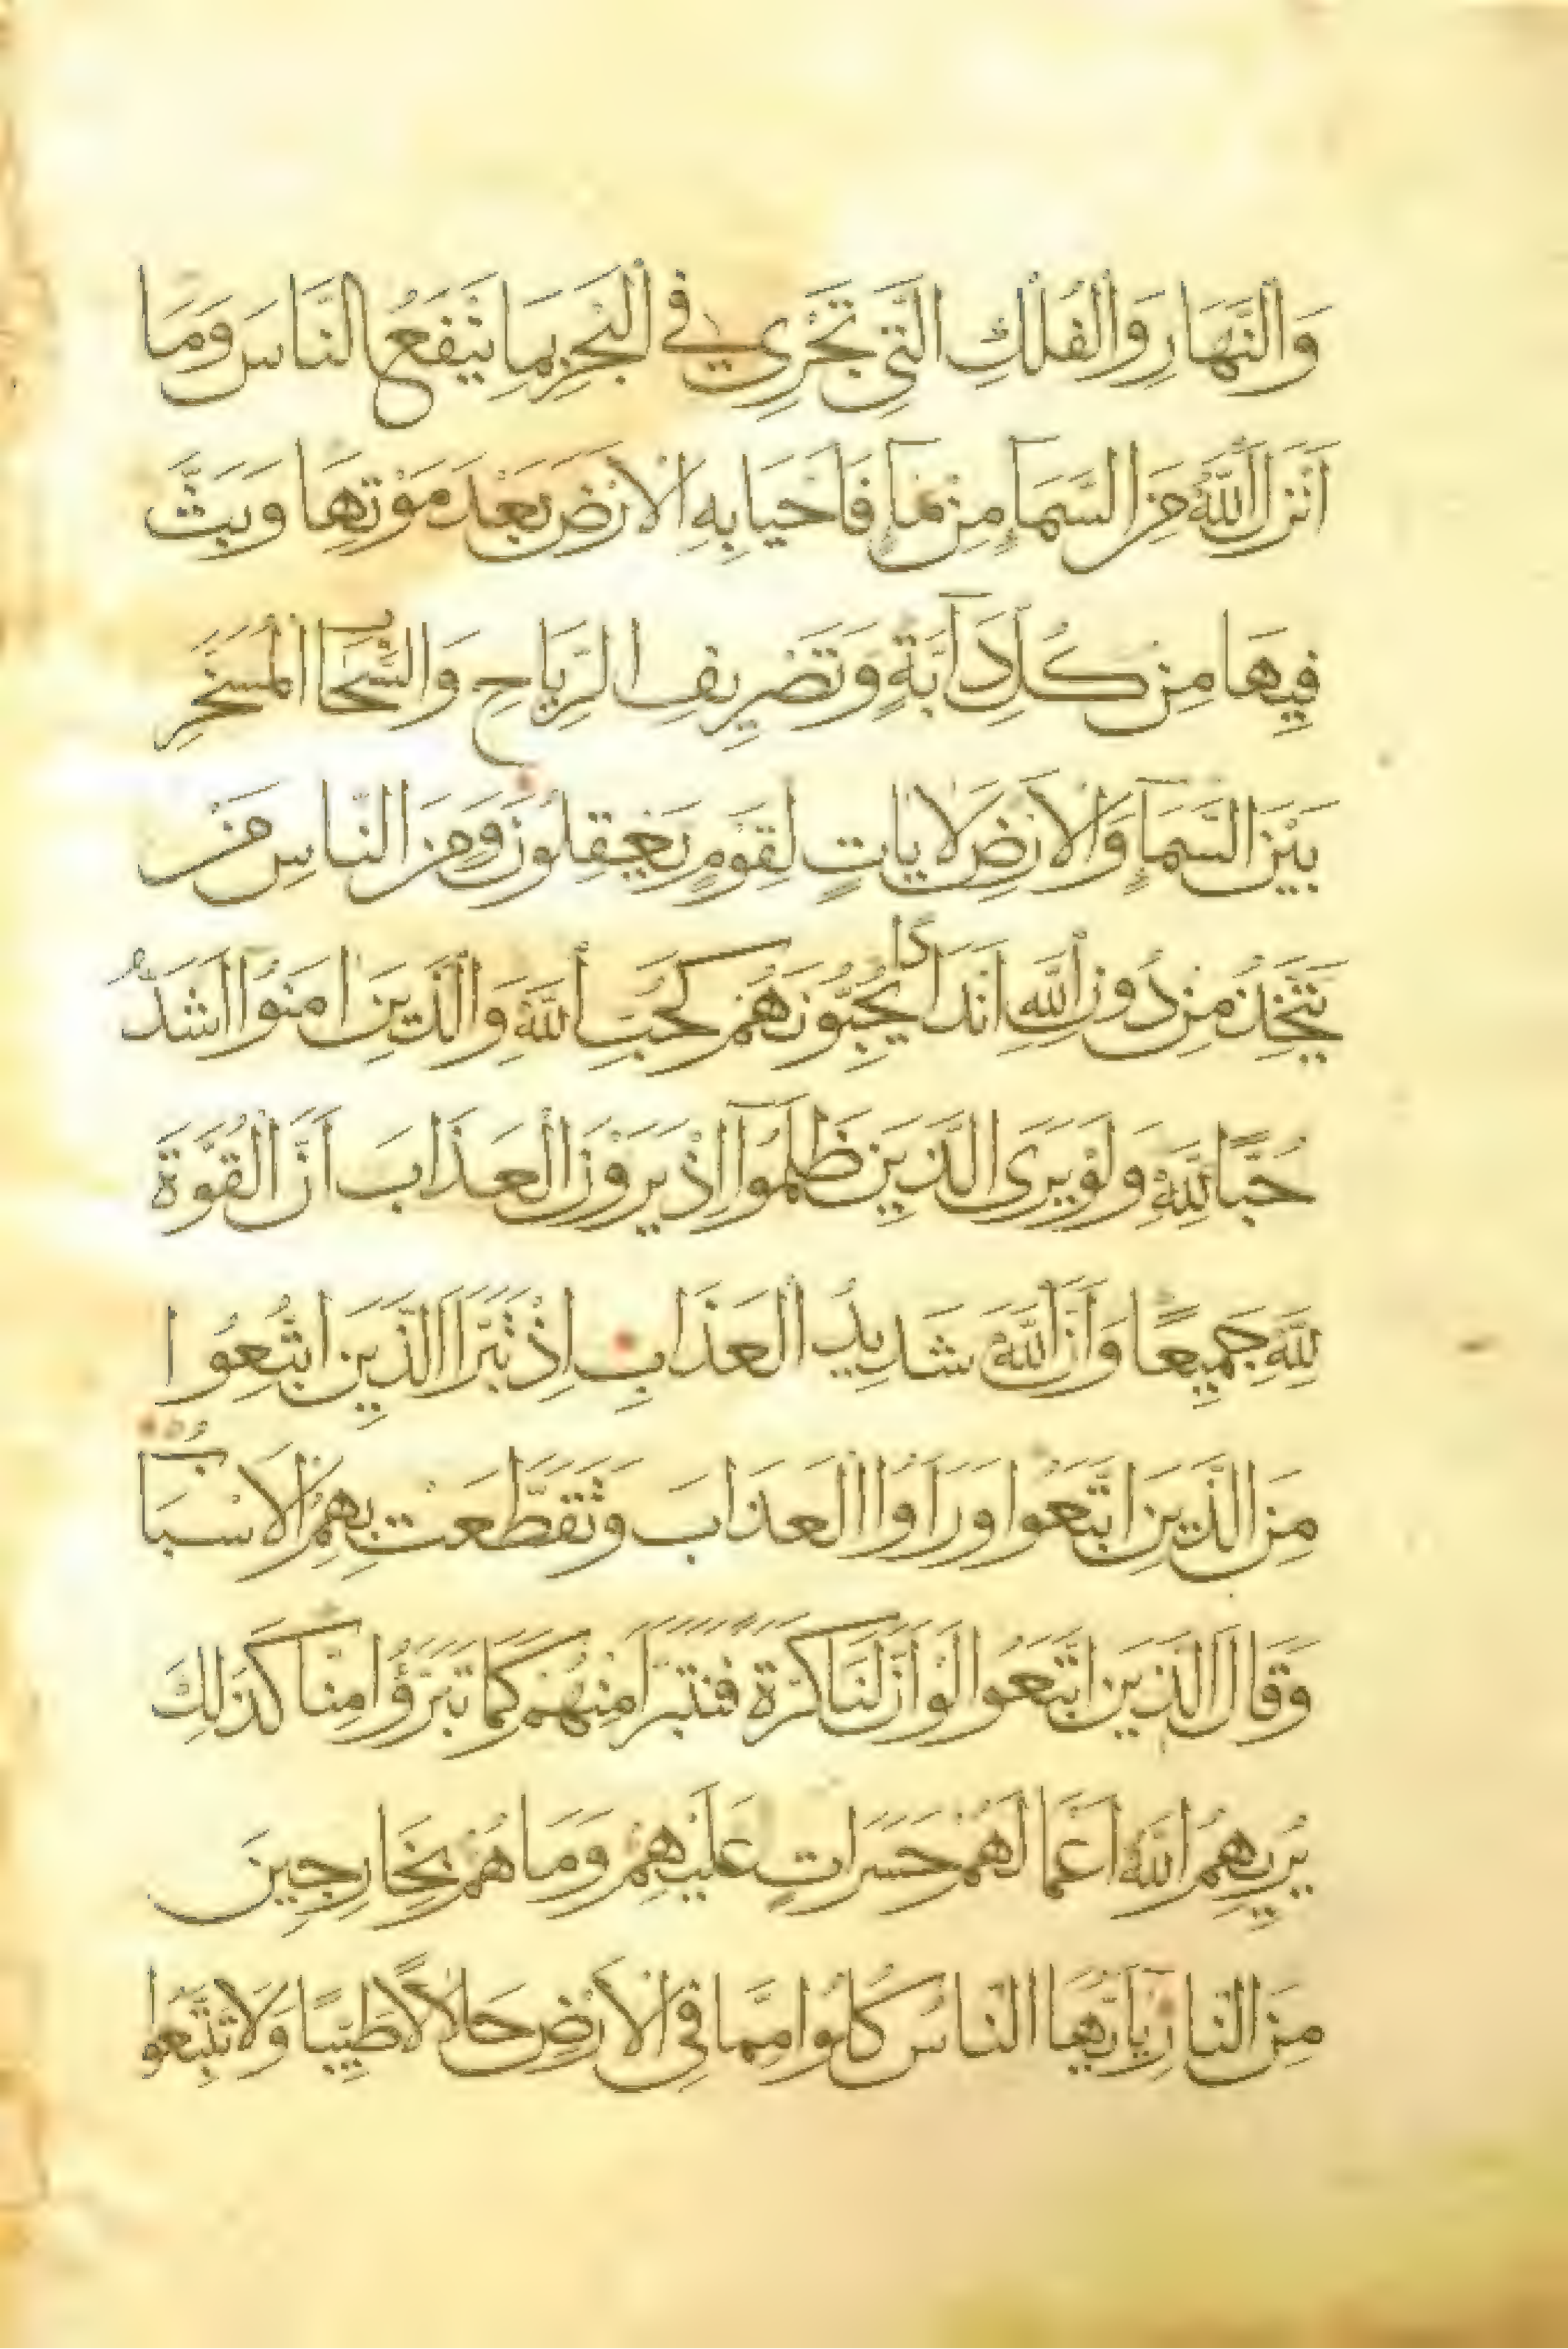 وَالنَّهَارِ وَالْفُلْكِ الَّتِي تَجْرِي فِي الْبَحْرِ بِمَا يَنْفَعُ النَّاسَ وَمَا
اَنْزَلَ اللّٰهُ مِنَ السَّمَآءِ مِنْ مَآءٍ فَاَحْيَا بِهِ الْاَرْضَ بَعْدَ مَوْتِهَا وَبَثَّ
فِيهَا مِنْ كُلِّ دَآبَّةٍ وَتَصْرِيفِ الرِّيَاحِ وَالسَّحَابِ الْمُسَخَّرِ
بَيْنَ السَّمَآءِ وَالْاَرْضِ لَاٰيَاتٍ لِقَوْمٍ يَعْقِلُونَ وَمِنَ النَّاسِ مَنْ
يَتَّخِذُ مِنْ دُونِ اللّٰهِ اَنْدَادًا يُحِبُّونَهُمْ كَحُبِّ اللّٰهِ وَالَّذِينَ اٰمَنُوٓا اَشَدُّ
حُبًّا لِلّٰهِ وَلَوْ يَرَى الَّذِينَ ظَلَمُوٓا اِذْ يَرَوْنَ الْعَذَابَ اَنَّ الْقُوَّةَ
لِلّٰهِ جَمِيعًا وَاَنَّ اللّٰهَ شَدِيدُ الْعَذَابِ اِذْ تَبَرَّاَ الَّذِينَ اتُّبِعُوا
مِنَ الَّذِينَ اتَّبَعُوا وَرَاَوُا الْعَذَابَ وَتَقَطَّعَتْ بِهِمُ الْاَسْبَابُ
وَقَالَ الَّذِينَ اتَّبَعُوا لَوْ اَنَّ لَنَا كَرَّةً فَنَتَبَرَّاَ مِنْهُمْ كَمَا تَبَرَّؤُا مِنَّا كَذٰلِكَ
يُرِيهِمُ اللّٰهُ اَعْمَالَهُمْ حَسَرَاتٍ عَلَيْهِمْ وَمَا هُمْ بِخَارِجِينَ
مِنَ النَّارِ يَآ اَيُّهَا النَّاسُ كُلُوا مِمَّا فِي الْاَرْضِ حَلَالًا طَيِّبًا وَلَا تَتَّبِعُوا